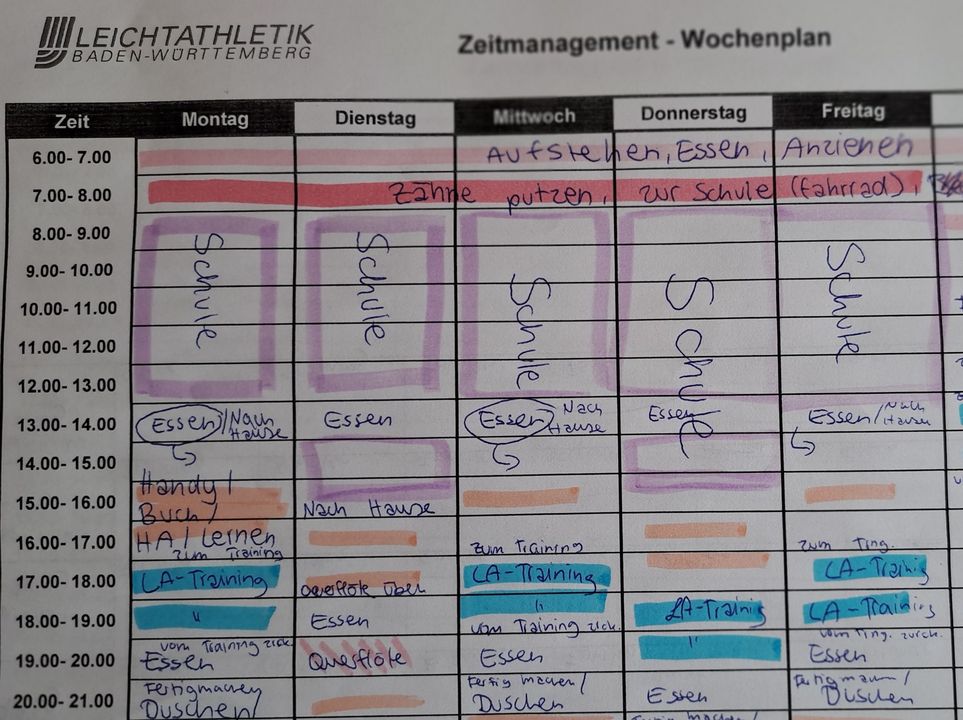 LEICHTATHLETIK
BADEN-WÜRTTEMBERG
Zeitmanagement - Wochenplan
Zeit Montag Dienstag Mittwoch Donnerstag Freitag
6.00- 7.00 Aufstehen, Essen, Anziehen
7.00- 8.00 Zähne putzen, zur Schule (Fahrrad),
8.00- 9.00
9.00- 10.00 Schule Schule Schule Schule Schule
10.00- 11.00
11.00- 12.00
12.00- 13.00
13.00- 14.00 Essen/Nach Hause Essen Essen Nach Hause Essen Essen/Nach Hause
14.00- 15.00
Handy/
15.00- 16.00 Buch/ Nach Hause
16.00- 17.00 HA/Lernen
zum Training zum Training zum Tng.
17.00- 18.00 LA-Training Querflöte üben LA-Training LA-Training
18.00- 19.00 " Essen " LA-Training LA-Training
vom Training zück. vom Training zück. vom Tng. zurück.
19.00- 20.00 Essen Querflöte Essen " Essen
20.00- 21.00 Fertigmachen/ Fertig machen/ Essen Fertig machen/
Duschen/ Duschen Duschen